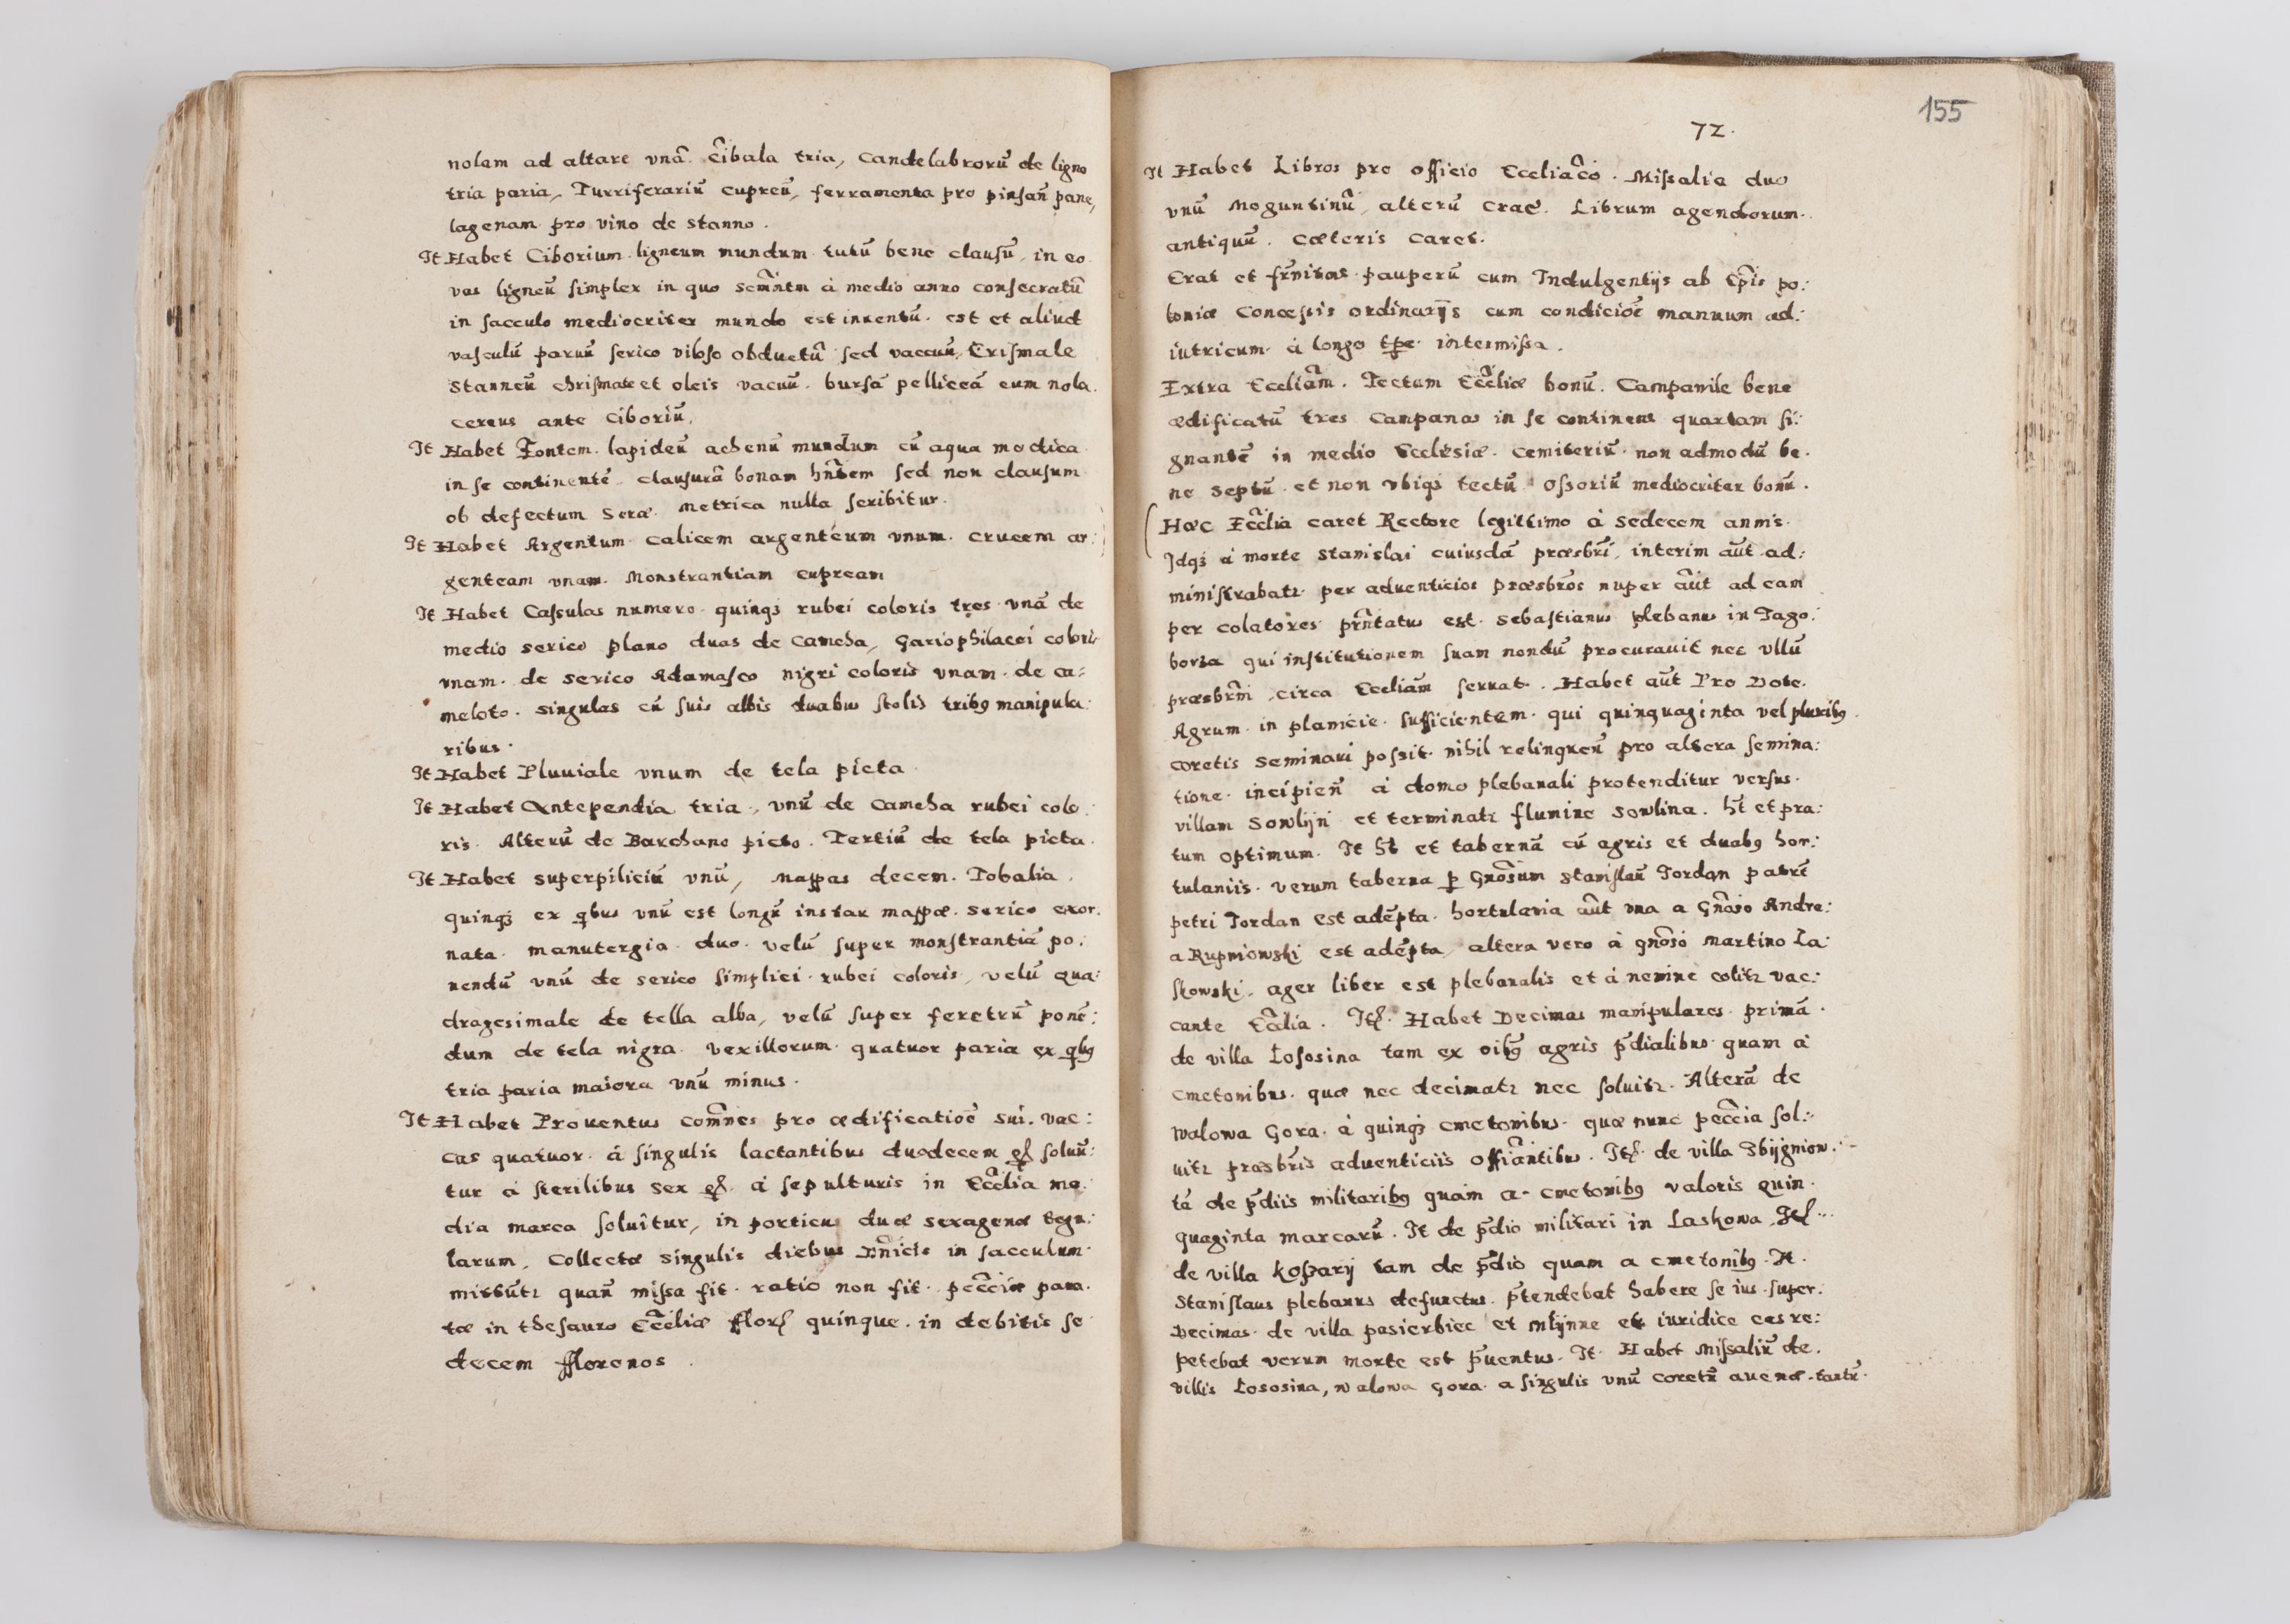 nolam ad altare vnã. Cĩbala tria, Candelabrorũ de ligno
tria paria, Turriferariũ cupreũ, ferramenta pro pinsañ pane,
lagenam pro vino de stanno.
It Habet Ciborium ligneum mundum tutũ bene clausũ, in eo
vas ligneũ simplex in quo Sacramẽntm à medio anno consecratũ
in sacculo mediocriter mundo est inuentũ. est et aliud
vasculũ paruũ serico viloso obductũ sed vacuũ, Crismale
Stanneũ chrismate et oleis vacuũ. bursã pelliceã cum nola.
cereus ante Ciboriũ.
It Habet Fontem lapideũ aehenũ mundum cũ aqua modica
in se continentẽ. clausurã bonam hñtem sed non clausum
ob defectum Seræ. metrica nulla scribitur.
It Habet Argentum Calicem argenteum vnum. crucem ar:
genteam vnam. Monstrantiam cupream
It Habet Casulas numero quinqз rubei coloris tres vnã de
medio serico plano duas de Camcha, Gariophilacei coloris
vnam. de serico Adamasco nigri coloris vnam. de ca:
meloto. singulas cũ suis albis duabus stolis tribꝰ manipula:
ribus.
It Habet Pluuiale vnum de tela picta.
It Habet Antependia tria, vnũ de Camcha rubei colo:
ris. Alterũ de Barchano picto. Tertiũ de tela picta.
It Habet superpiliciũ vnũ, mappas decem. Tobalia
quinqз ex qbus vnũ est longũ instar mappæ. serico exor.
nata. manutergia duo. velũ super monstrantiã po.
nendũ vnũ de serico simplici rubei coloris, velũ qua:
dragesimale de tella alba, velũ super feretrũ ponẽ:
dum de tela nigra. vexillorum quatuor paria ex qbꝰ
tria paria maiora vnũ minus.
It Habet Prouentus com̃nes pro ædificatiõe sui. vac:
cas quatuor. à singulis lactantibus duodecem gꝭ soluũ:
tur à sterilibus sex gꝭ. à sepulturis in Ecc̃lia me:
dia marca soluitur, in porticu duæ sexagenæ tegu:
larum, Collectæ singulis diebus Dñicis in sacculum.
mittũtꝛ quañ missa fit. ratio non fit. pecc̃iæ para.
tæ in thesauro Ecc̃liæ florꝭ quinque. in debitis se
decem fflorenos.
155
72.
It Habet Libros pro officio Eccliãco. Missalia duo
vnũ Moguntinũ, alterũ Crac̃. Librum agendorum.
antiquũ. Cæteris caret.
Erat et fr̃nitas pauperũ cum Indulgentijs ab Ep̃is po:
loniæ Concessis ordinarijs cum condiciõe manuum ad:
iutricum. à longo tp̃e intermissa.
Extra Eccliãm. Tectum Ecc̃liæ bonũ. Campanile bene
ædificatũ tres Campanas in se continens quartam si:
gnantẽ in medio Ecclesiæ. cemiteriũ non admodũ be.
ne septũ et non vbiqз tectũ. Ossoriũ mediocriter bonũ.
Hæc Ecc̃lia caret Rectore legittimo à sedecem annis.
Idqз à morte Stanislai cuiusdã præsbrĩ, interim aũt ad:
ministrabatꝛ per aduenticios præsbrõs nuper aũt ad eam
per colatores prñtatus est Sebastianus plebanus in Jago:
borza qui institutionem suam nondũ procurauit nec vllũ
præsbrm̃ circa Eccliãm seruat. Habet aũt Pro Dote.
Agrum in planicie sufficientem qui quinquaginta vel pluribꝰ
coretis seminari possit nihil relinqueñ pro altera semina:
tione. incipieñ à domo plebanali protenditur versus
villam Sowlijn et terminatꝛ flumine Sowlina. ht̃ et pra:
tum optimum. It ht̃ et tabernã cũ agris et duabꝰ hor:
tulaniis. verum taberna ꝑ Gñosum Stanislaũ Jordan patrẽ
petri Jordan est adẽpta. hortulania aũt vna a Gñoso Andre:
a Rupniowski est adẽpta, altera vero à gñoso Martino La:
skowski. ager liber est plebanalis et à nemine colitꝛ vac:
cante Eccĩlia. Itꝭ. Habet Decimas manipulares. primã.
de villa Lososina tam ex oĩbꝰ agris p̃dialibus quam à
cmetonibus. quæ nec decimatꝛ nec soluitꝛ. Alterã de
Walowa Gora. à quinqз cmetonibus. quæ nunc pecc̃ia sol:
uitꝛ præsbrĩs aduenticiis offiãntibus. Itꝭ. de villa Sbijgniow:
tã de p̃diis militaribꝰ quam a cmetonibꝰ valoris quin
quaginta marcarũ. It de p̃dio militari in Laskowa. Itꝭ
de villa Kossarij tam de p̃dio quam a cmetonibꝰ. It.
Stanislaus plebanus defunctus. p̃tendebat habere se ius super:
Decimas de villa pasierbiec et mlijnne et iuridice eas re:
petebat verum morte est p̃uentus. It. Habet Missaliũ de.
villis Lososina, walowa Gora. a singulis vnũ coretũ auenæ tantũ.